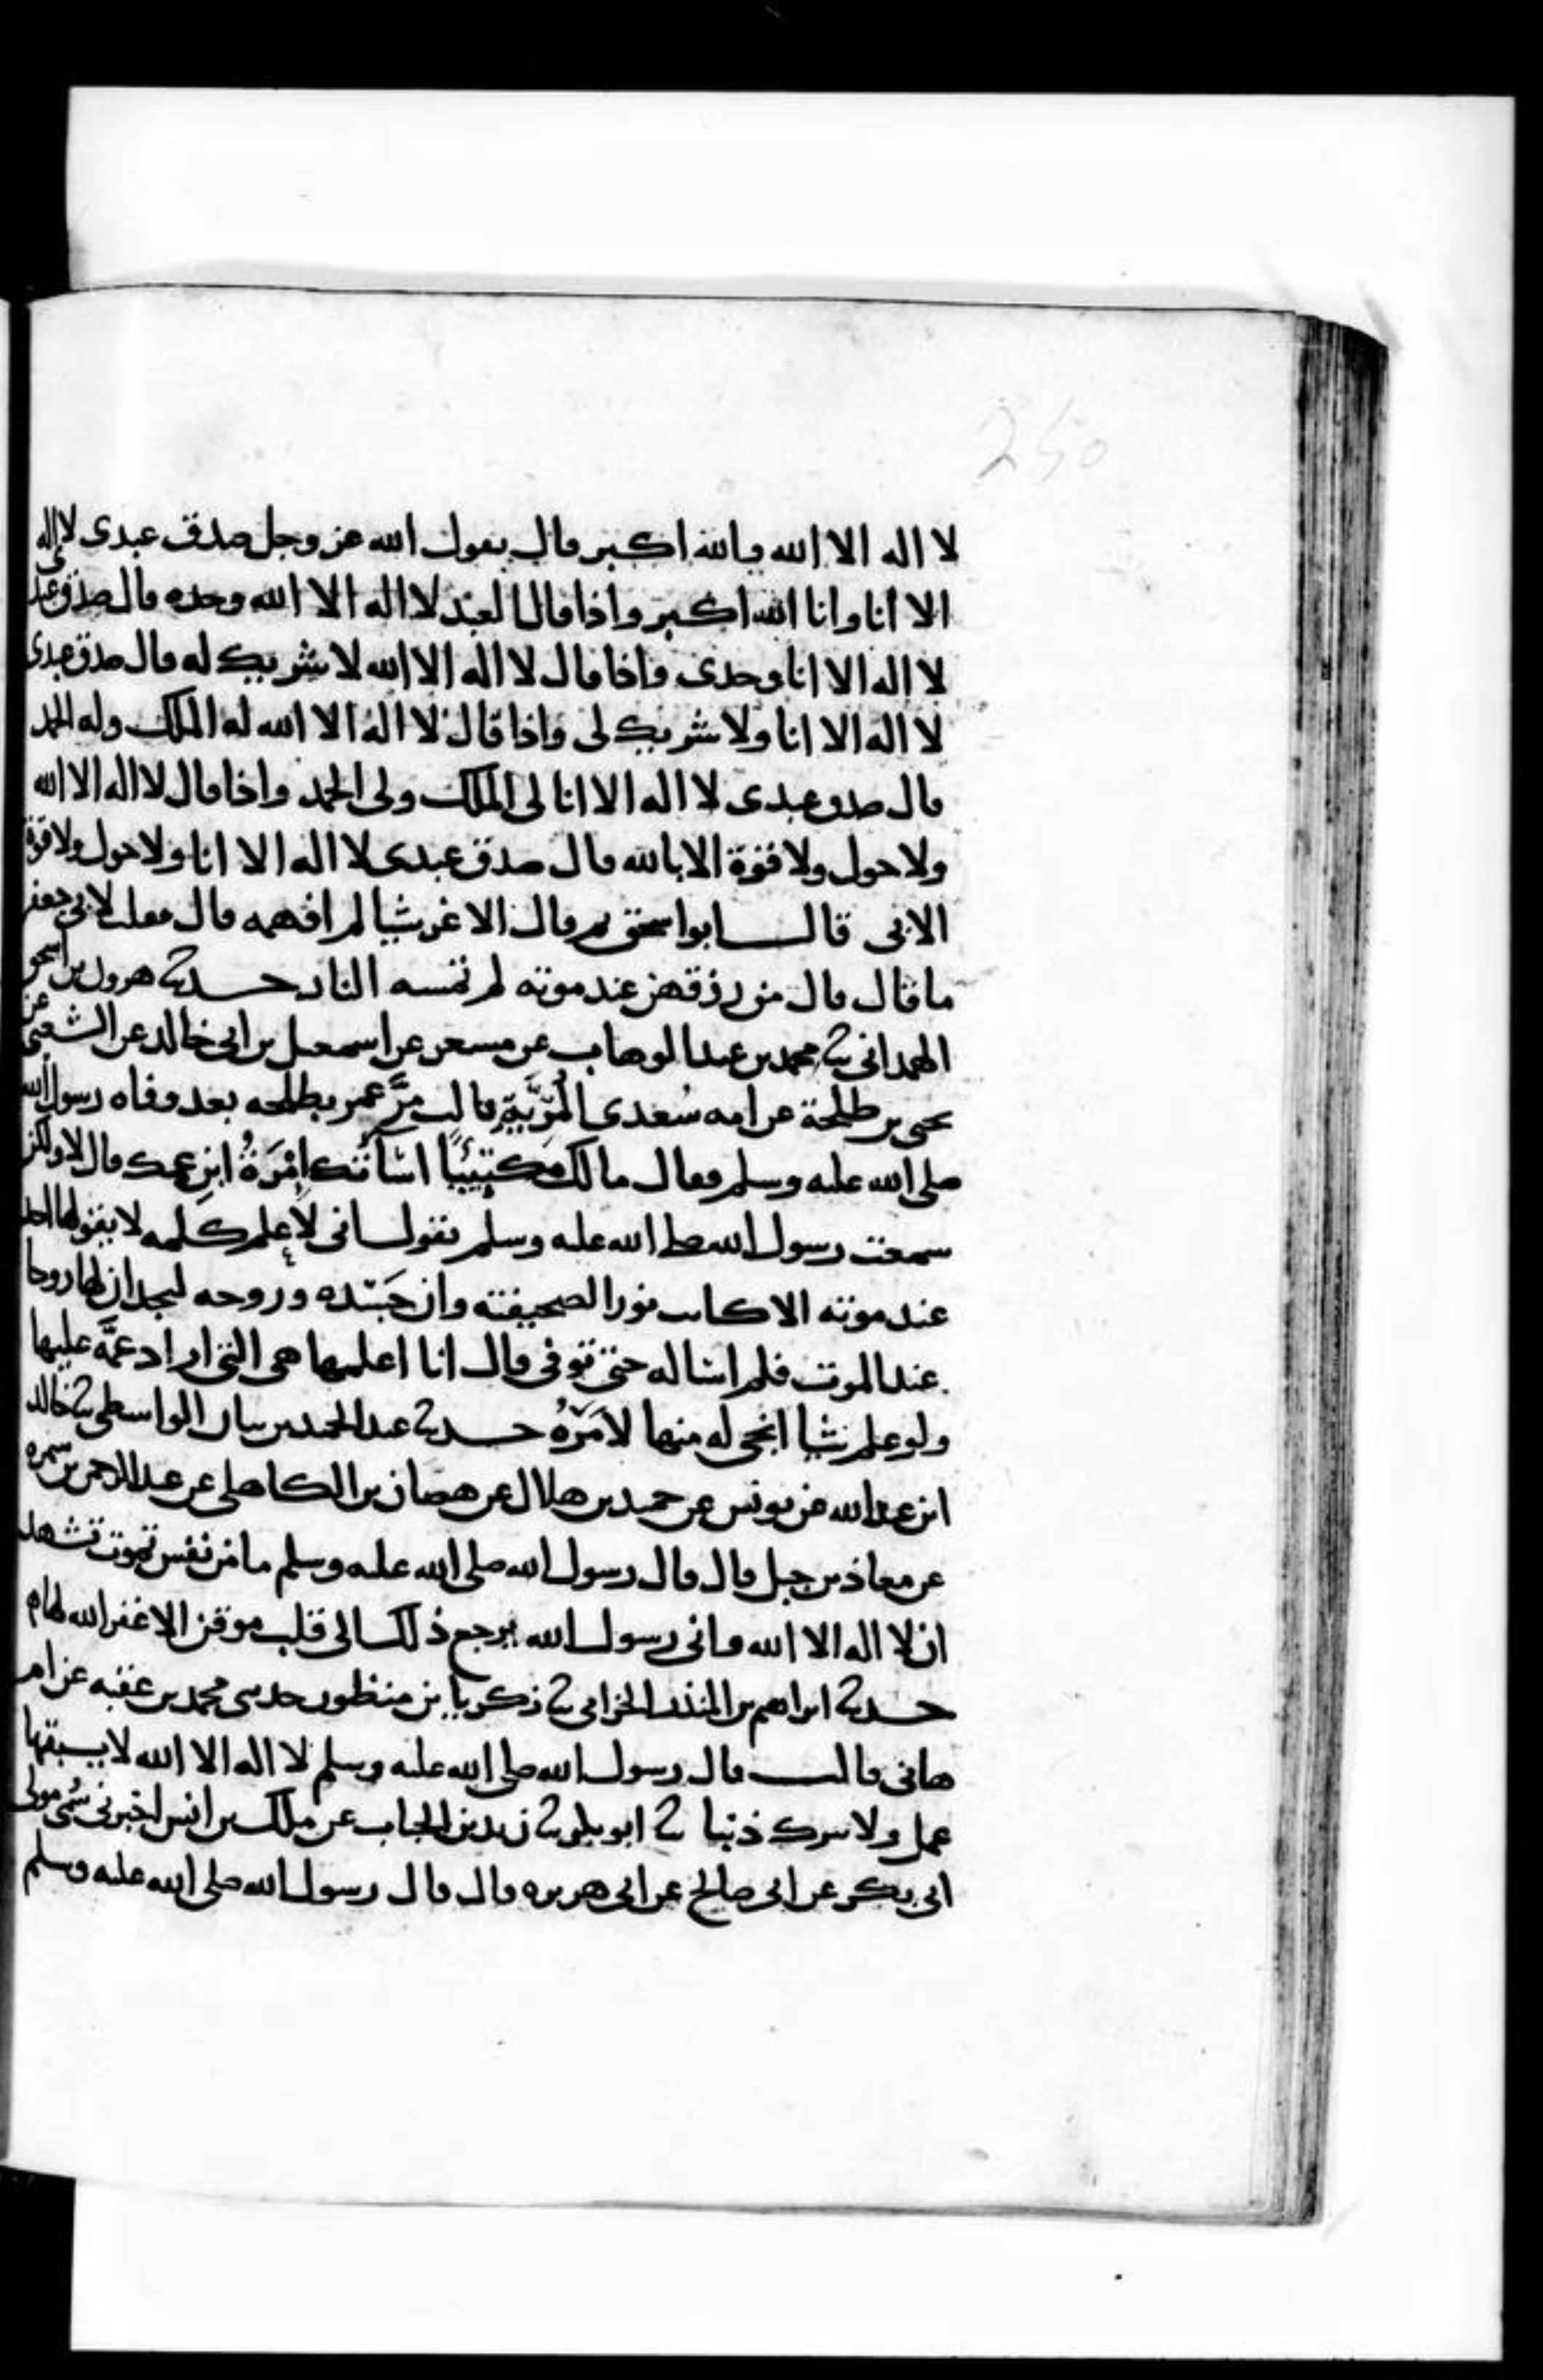 250
لا اله الا الله والله اكبر قال يقول الله عز وجل صدق عبدى لا اله
الا انا وانا الله اكبر واذا قال العبد لا اله الا الله وحده قال صدق عبدى
لا اله الا انا وحدى واذا قال لا اله الا الله لا شريك له قال صدق عبدى
لا اله الا انا ولا شريك لى واذا قال لا اله الا الله له الملك وله الحمد
قال صدق عبدى لا اله الا انا لى الملك ولى الحمد واذا قال لا اله الا الله
ولا حول ولا قوة الا بالله قال صدق عبدى لا اله الا انا ولا حول ولا قوة
الا بى قال ابو اسحق ثم قال الاغر شيا لم افهمه قال فقلت لابى جعفر
ما قال قال من رزقهن عند موته لم تمسه النار حدثنا هرون بن اسحق
الهمدانى ثنا محمد بن عبد الوهاب عن مسعر عن اسمعيل بن ابى خالد عن الشعبى عن
يحيى بن طلحة عن امه سُعدى المُرِّيَّةِ قالت مرَّ عمر بطلحه بعد وفاه رسول الله
صلى الله عليه وسلم فقال مالك مكتئبًا اسَاَتْك اِمْرَةُ ابنِ عمك قال لا ولكن
سمعت رسول الله صلى الله عليه وسلم يقول انى لاَعلم كلمه لا يقولها احد
عند موته الا كانت نورا لصحيفته وان جَسَده وروحه ليجدان لها روحا
عند الموت فلم اساله حتى توفى قال انا اعلمها هى التى اراد عمَّه عليها
ولو علم شيا انجى له منها لاَمَرَهُ حدثنا عبد الحميد بن بيان الواسطى ثنا خالد
ابن عبد الله عن يونس عن حميد بن هلال عن هصان بن الكاهلى عن عبد الرحمن بن سمره
عن معاذ بن جبل قال قال رسول الله صلى الله عليه وسلم ما من نفس تموت تشهد
ان لا اله الا الله وانى رسول الله يرجع ذلك الى قلب موقن الا غفر الله لها
حدثنا ابراهيم بن المنذر الحزامى ثنا زكريا بن منظور حدثنى محمد بن عقبه عن ام
هانى قالت قال رسول الله صلى الله عليه وسلم لا اله الا الله لا يسبقها
عمل ولا تترك ذنبا ثنا ابو بكر ثنا زيد بن الحباب عن ملك بن انس اخبرنى سُمَى مولى
ابى بكر عن ابى صالح عن ابى هريره قال قال رسول الله صلى الله عليه وسلم